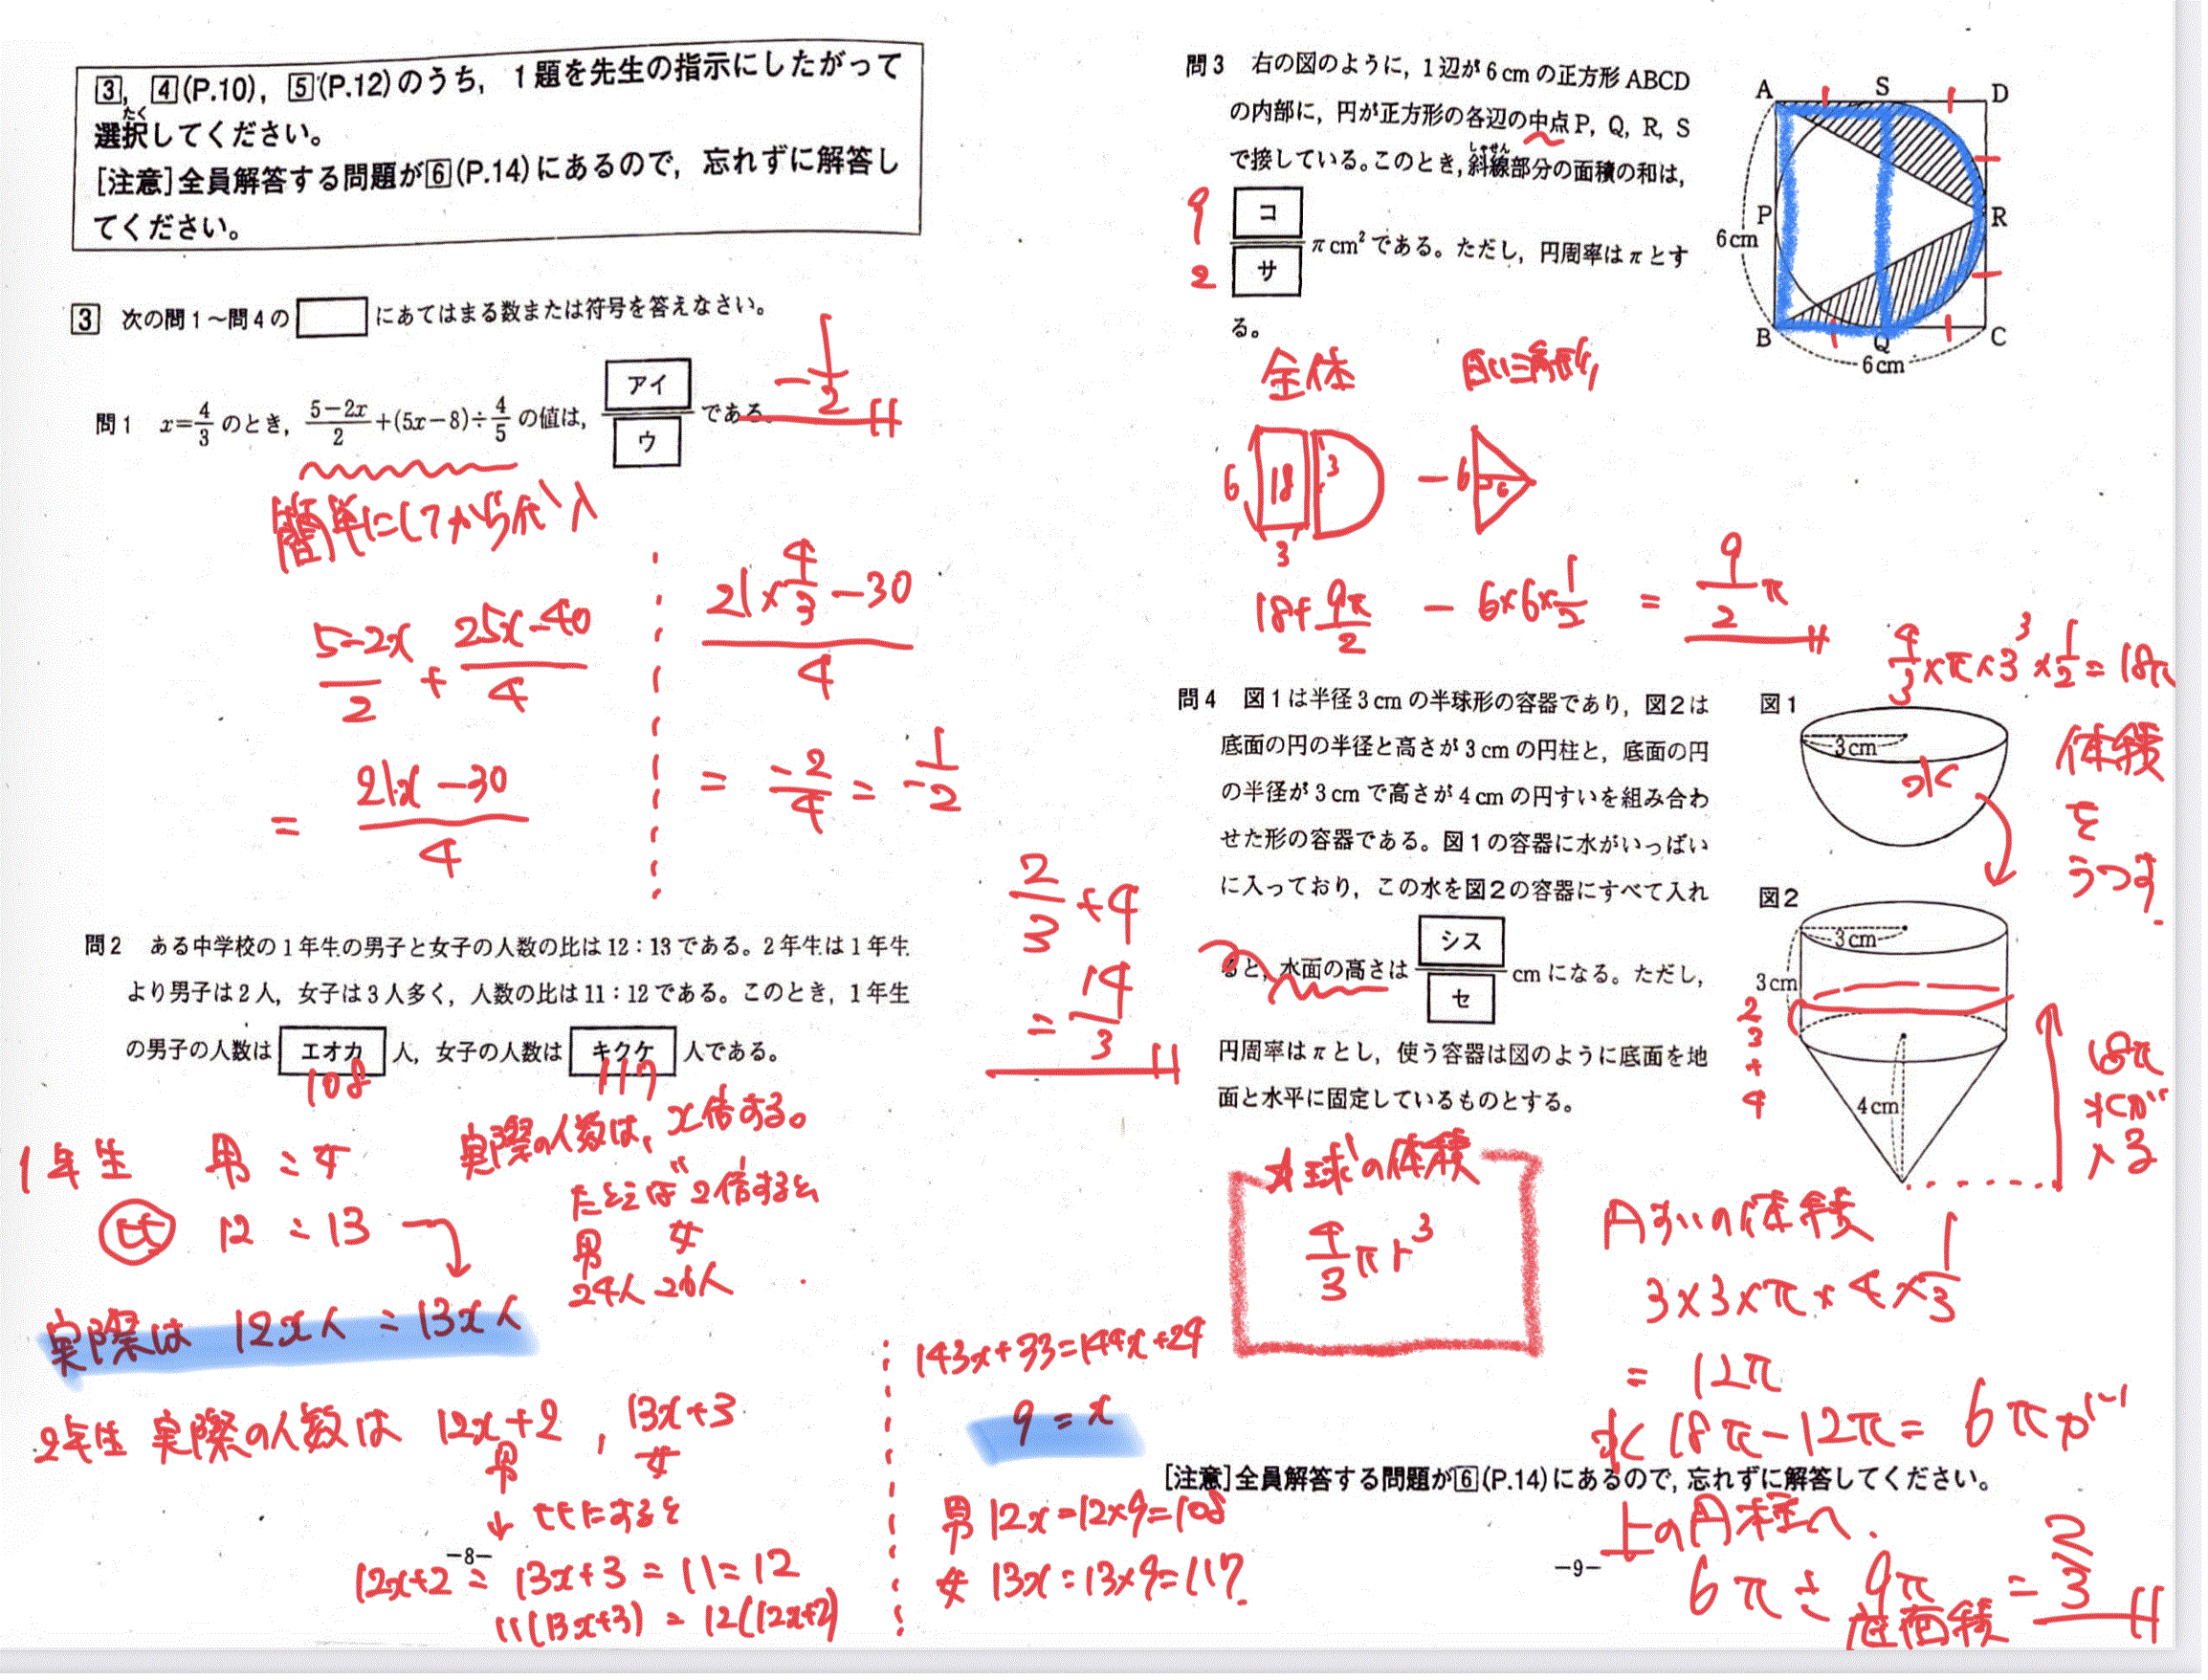 3, 4(P.10), 5(P.12)のうち, 1題を先生の指示にしたがって
選択してください。
たく
[注意]全員解答する問題が6(P.14)にあるので, 忘れずに解答し
てください。
3 次の問1〜問4の にあてはまる数または符号を答えなさい。
問1 x=4/3 のとき, (5−2x)/2+(5x−8)÷4/5 の値は, アイ/ウ である。
−1/2
簡単にしてから代入
(5−2x)/2 + (25x−40)/4
= (21x−30)/4
(21×4/3−30)/4
= −2/4 = −1/2
問2 ある中学校の1年生の男子と女子の人数の比は12:13である。2年生は1年生
より男子は2人, 女子は3人多く, 人数の比は11:12である。このとき, 1年生
の男子の人数は エオカ 人, 女子の人数は キクケ 人である。
108 117
1年生 男:女
比 12:13
実際の人数は, x倍する。
たとえば 2倍すると
男 女
24人 26人
実際は 12x人:13x人
2年生 実際の人数は 12x+2, 13x+3
男 女
↓ 比にすると
12x+2:13x+3=11:12
11(13x+3)=12(12x+2)
143x+33=144x+24
9=x
男 12x=12×9=108
女 13x=13×9=117.
−8−
問3 右の図のように, 1辺が6cmの正方形ABCD
の内部に, 円が正方形の各辺の中点P, Q, R, S
で接している。このとき, 斜線部分の面積の和は,
しゃせん
コ/サ πcm²である。ただし, 円周率はπとす
る。
9
2
A S D
P R
B Q C
6cm
6cm
全体 白い三角形
6 18 3 − 6 6
3
18+9π/2 − 6×6×1/2 = 9/2π
問4 図1は半径3cmの半球形の容器であり, 図2は
底面の円の半径と高さが3cmの円柱と, 底面の円
の半径が3cmで高さが4cmの円すいを組み合わ
せた形の容器である。図1の容器に水がいっぱい
に入っており, この水を図2の容器にすべて入れ
ると, 水面の高さは シス/セ cmになる。ただし,
円周率はπとし, 使う容器は図のように底面を地
面と水平に固定しているものとする。
2/3+4
=14/3
4/3×π×3³×1/2=18π
図1
3cm
水
体積
を
うつす.
図2
3cm
3cm
4cm
2/3
+
4
18π
水が
入る
球の体積
4/3πr³
円すいの体積
3×3×π×4×1/3
=12π
水 18π−12π=6πが
[注意]全員解答する問題が6(P.14)にあるので, 忘れずに解答してください。
上の円柱へ.
6π÷9π=2/3
底面積
−9−